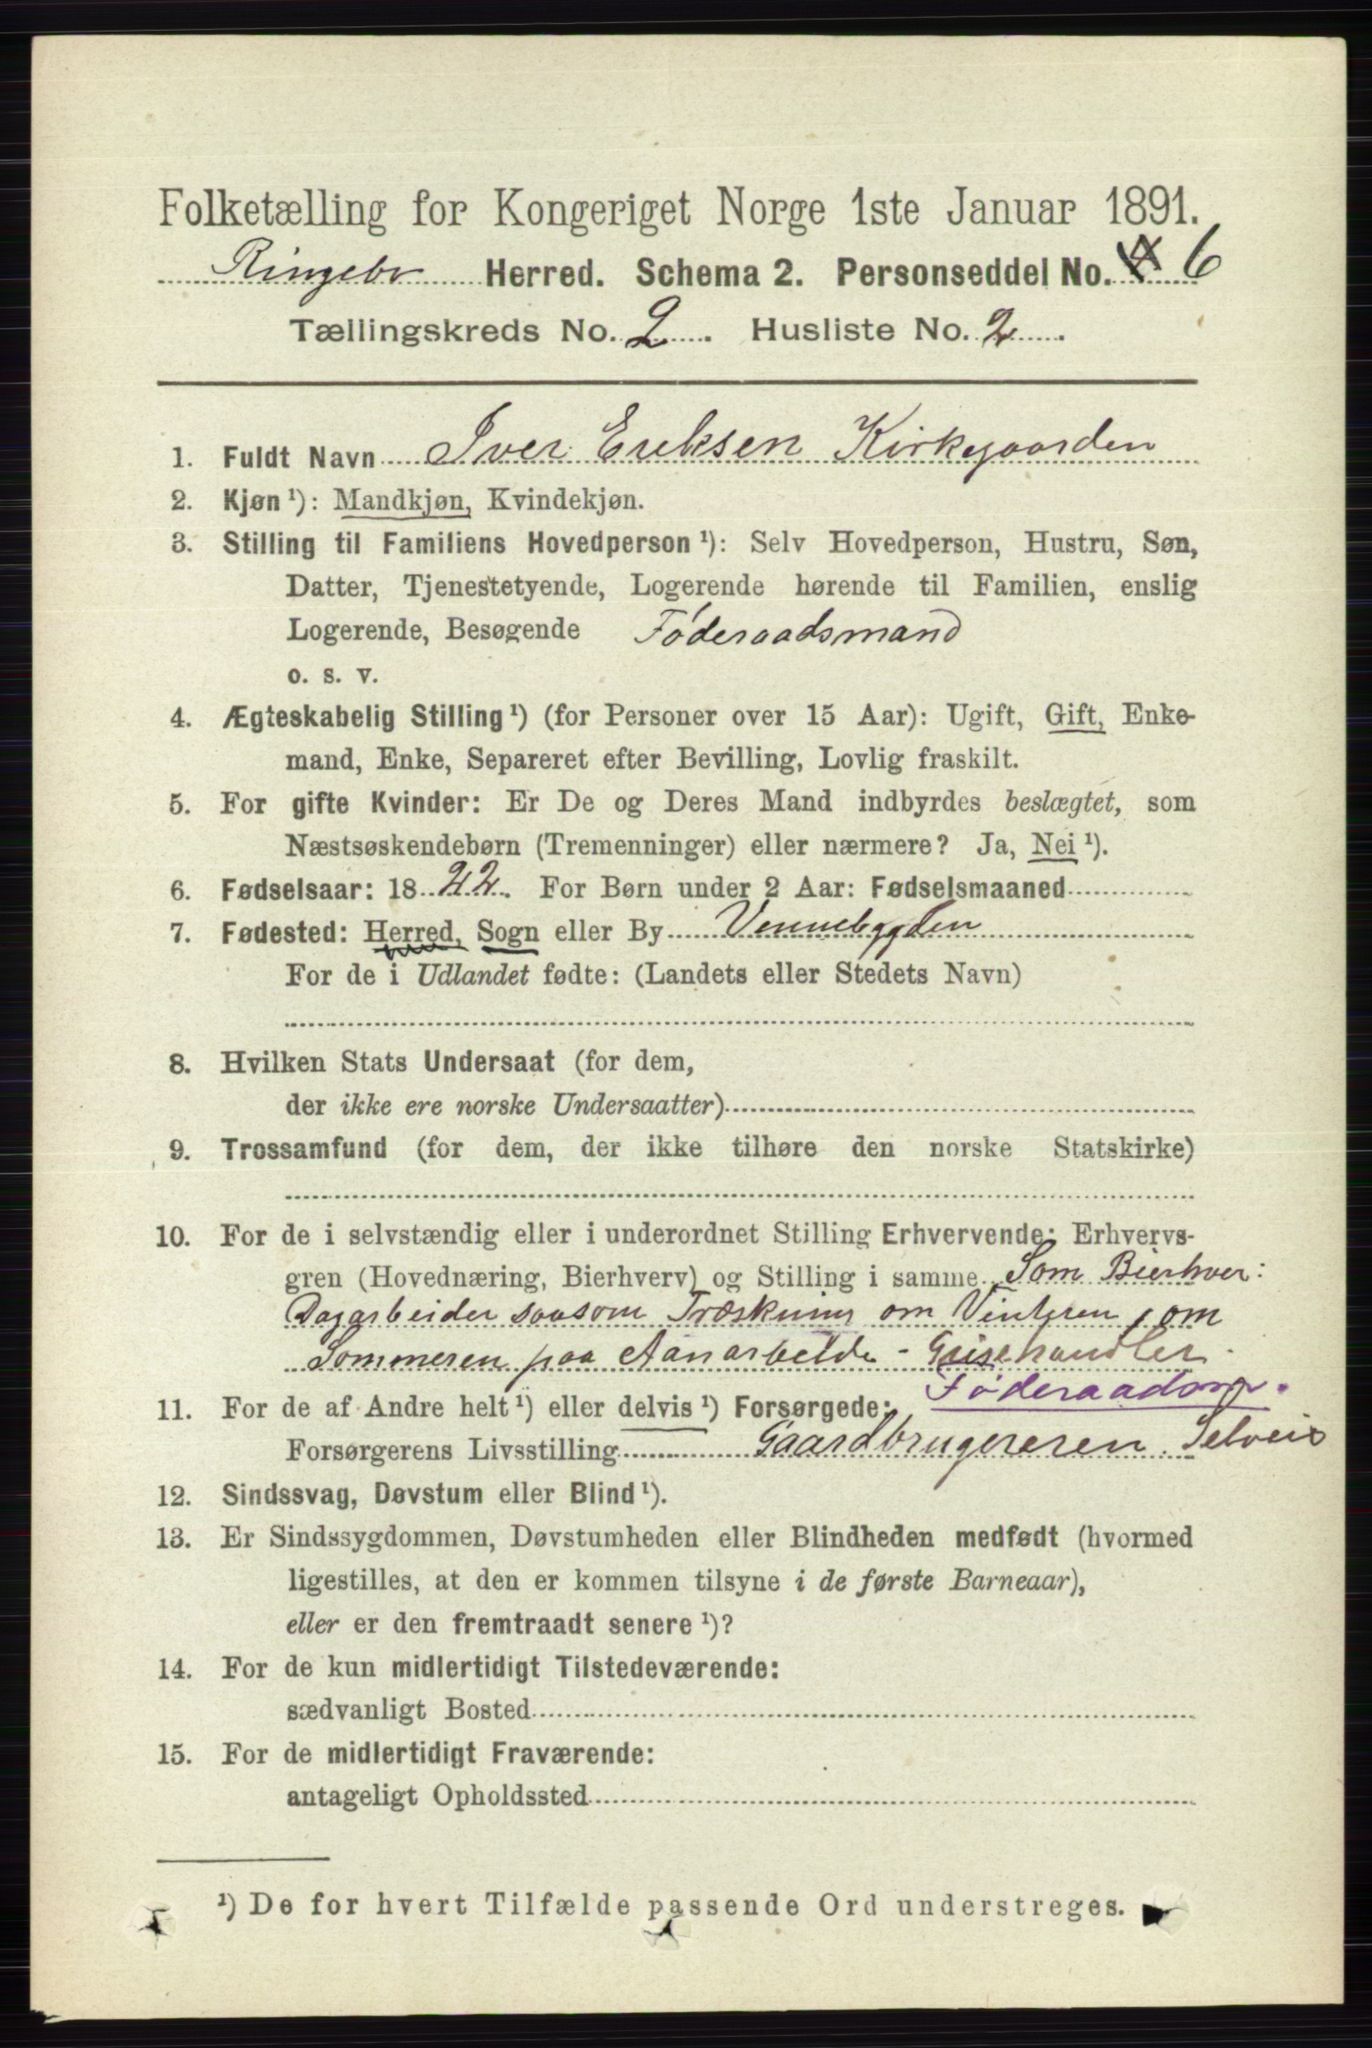 Folketælling for Kongeriget Norge 1ste Januar 1891.
Ringebu Herred. Schema 2. Personseddel No. 6
Tællingskreds No. 2. Husliste No. 2.
1. Fuldt Navn Iver Eriksen Kirkegaarden
2. Kjøn ¹): Mandkjøn, Kvindekjøn.
3. Stilling til Familiens Hovedperson ¹): Selv Hovedperson, Hustru, Søn,
Datter, Tjenestetyende, Logerende hørende til Familien, enslig
Logerende, Besøgende Føderaadsmand
o. s. v.
4. Ægteskabelig Stilling ¹) (for Personer over 15 Aar): Ugift, Gift, Enke-
mand, Enke, Separeret efter Bevilling, Lovlig fraskilt.
5. For gifte Kvinder: Er De og Deres Mand indbyrdes beslægtet, som
Næstsøskendebørn (Tremenninger) eller nærmere? Ja, Nei ¹).
6. Fødselsaar: 1822. For Børn under 2 Aar: Fødselsmaaned
7. Fødested: Herred, Sogn eller By Vennebygden
For de i Udlandet fødte: (Landets eller Stedets Navn)
8. Hvilken Stats Undersaat (for dem,
der ikke ere norske Undersaatter)
9. Trossamfund (for dem, der ikke tilhøre den norske Statskirke)
10. For de i selvstændig eller i underordnet Stilling Erhvervende: Erhvervs-
gren (Hovednæring, Bierhverv) og Stilling i samme Som Bierhver:
Dagarbeider saasom om Vinteren, om
Sommeren paa Aanarbeide - Grisehandler.
Føderaadsm.
11. For de af Andre helt ¹) eller delvis ¹) Forsørgede:
Forsørgerens Livsstilling Gaardbrugeren. Selveis
12. Sindssvag, Døvstum eller Blind ¹).
13. Er Sindssygdommen, Døvstumheden eller Blindheden medfødt (hvormed
ligestilles, at den er kommen tilsyne i de første Barneaar),
eller er den fremtraadt senere ¹)?
14. For de kun midlertidigt Tilstedeværende:
sædvanligt Bosted
15. For de midlertidigt Fraværende:
antageligt Opholdssted
¹) De for hvert Tilfælde passende Ord understreges.